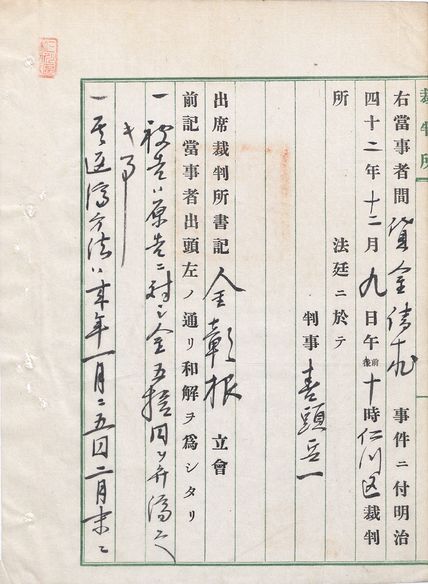 裁判所
右當事者間貸金請求事件ニ付明治
四十二年十二月九日午前後十時仁川区裁判
所 法廷ニ於テ
判事
出席裁判所書記 金彰根 立會
前記當事者出頭左ノ通リ和解ヲ為シタリ
一被告ハ原告ニ対シ金五拾円ヲ弁済スヘ
キ事
一其返済方法ハ来年一月ニ五円二月末ニ